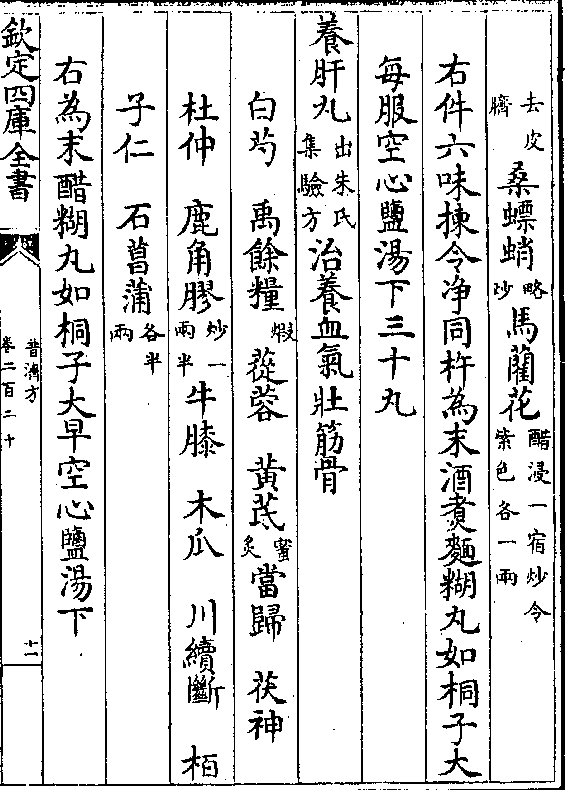 去皮臍 桑螵蛸略炒 馬藺花醋浸一宿炒令紫色各一兩
右件六味揀令净同杵為末酒煮麵糊丸如桐子大
每服空心鹽湯下三十丸
養肝丸出朱氏集驗方治養血氣壯筋骨
白芍 禹餘糧煅 蓯蓉 黃芪蜜炙 當歸 茯神
杜仲 鹿角膠炒一兩半 牛膝 木瓜 川續斷 栢
子仁 石菖蒲各半兩
右為末醋糊丸如桐子大早空心鹽湯下
欽定四庫全書
普濟方
卷二百二十
十一